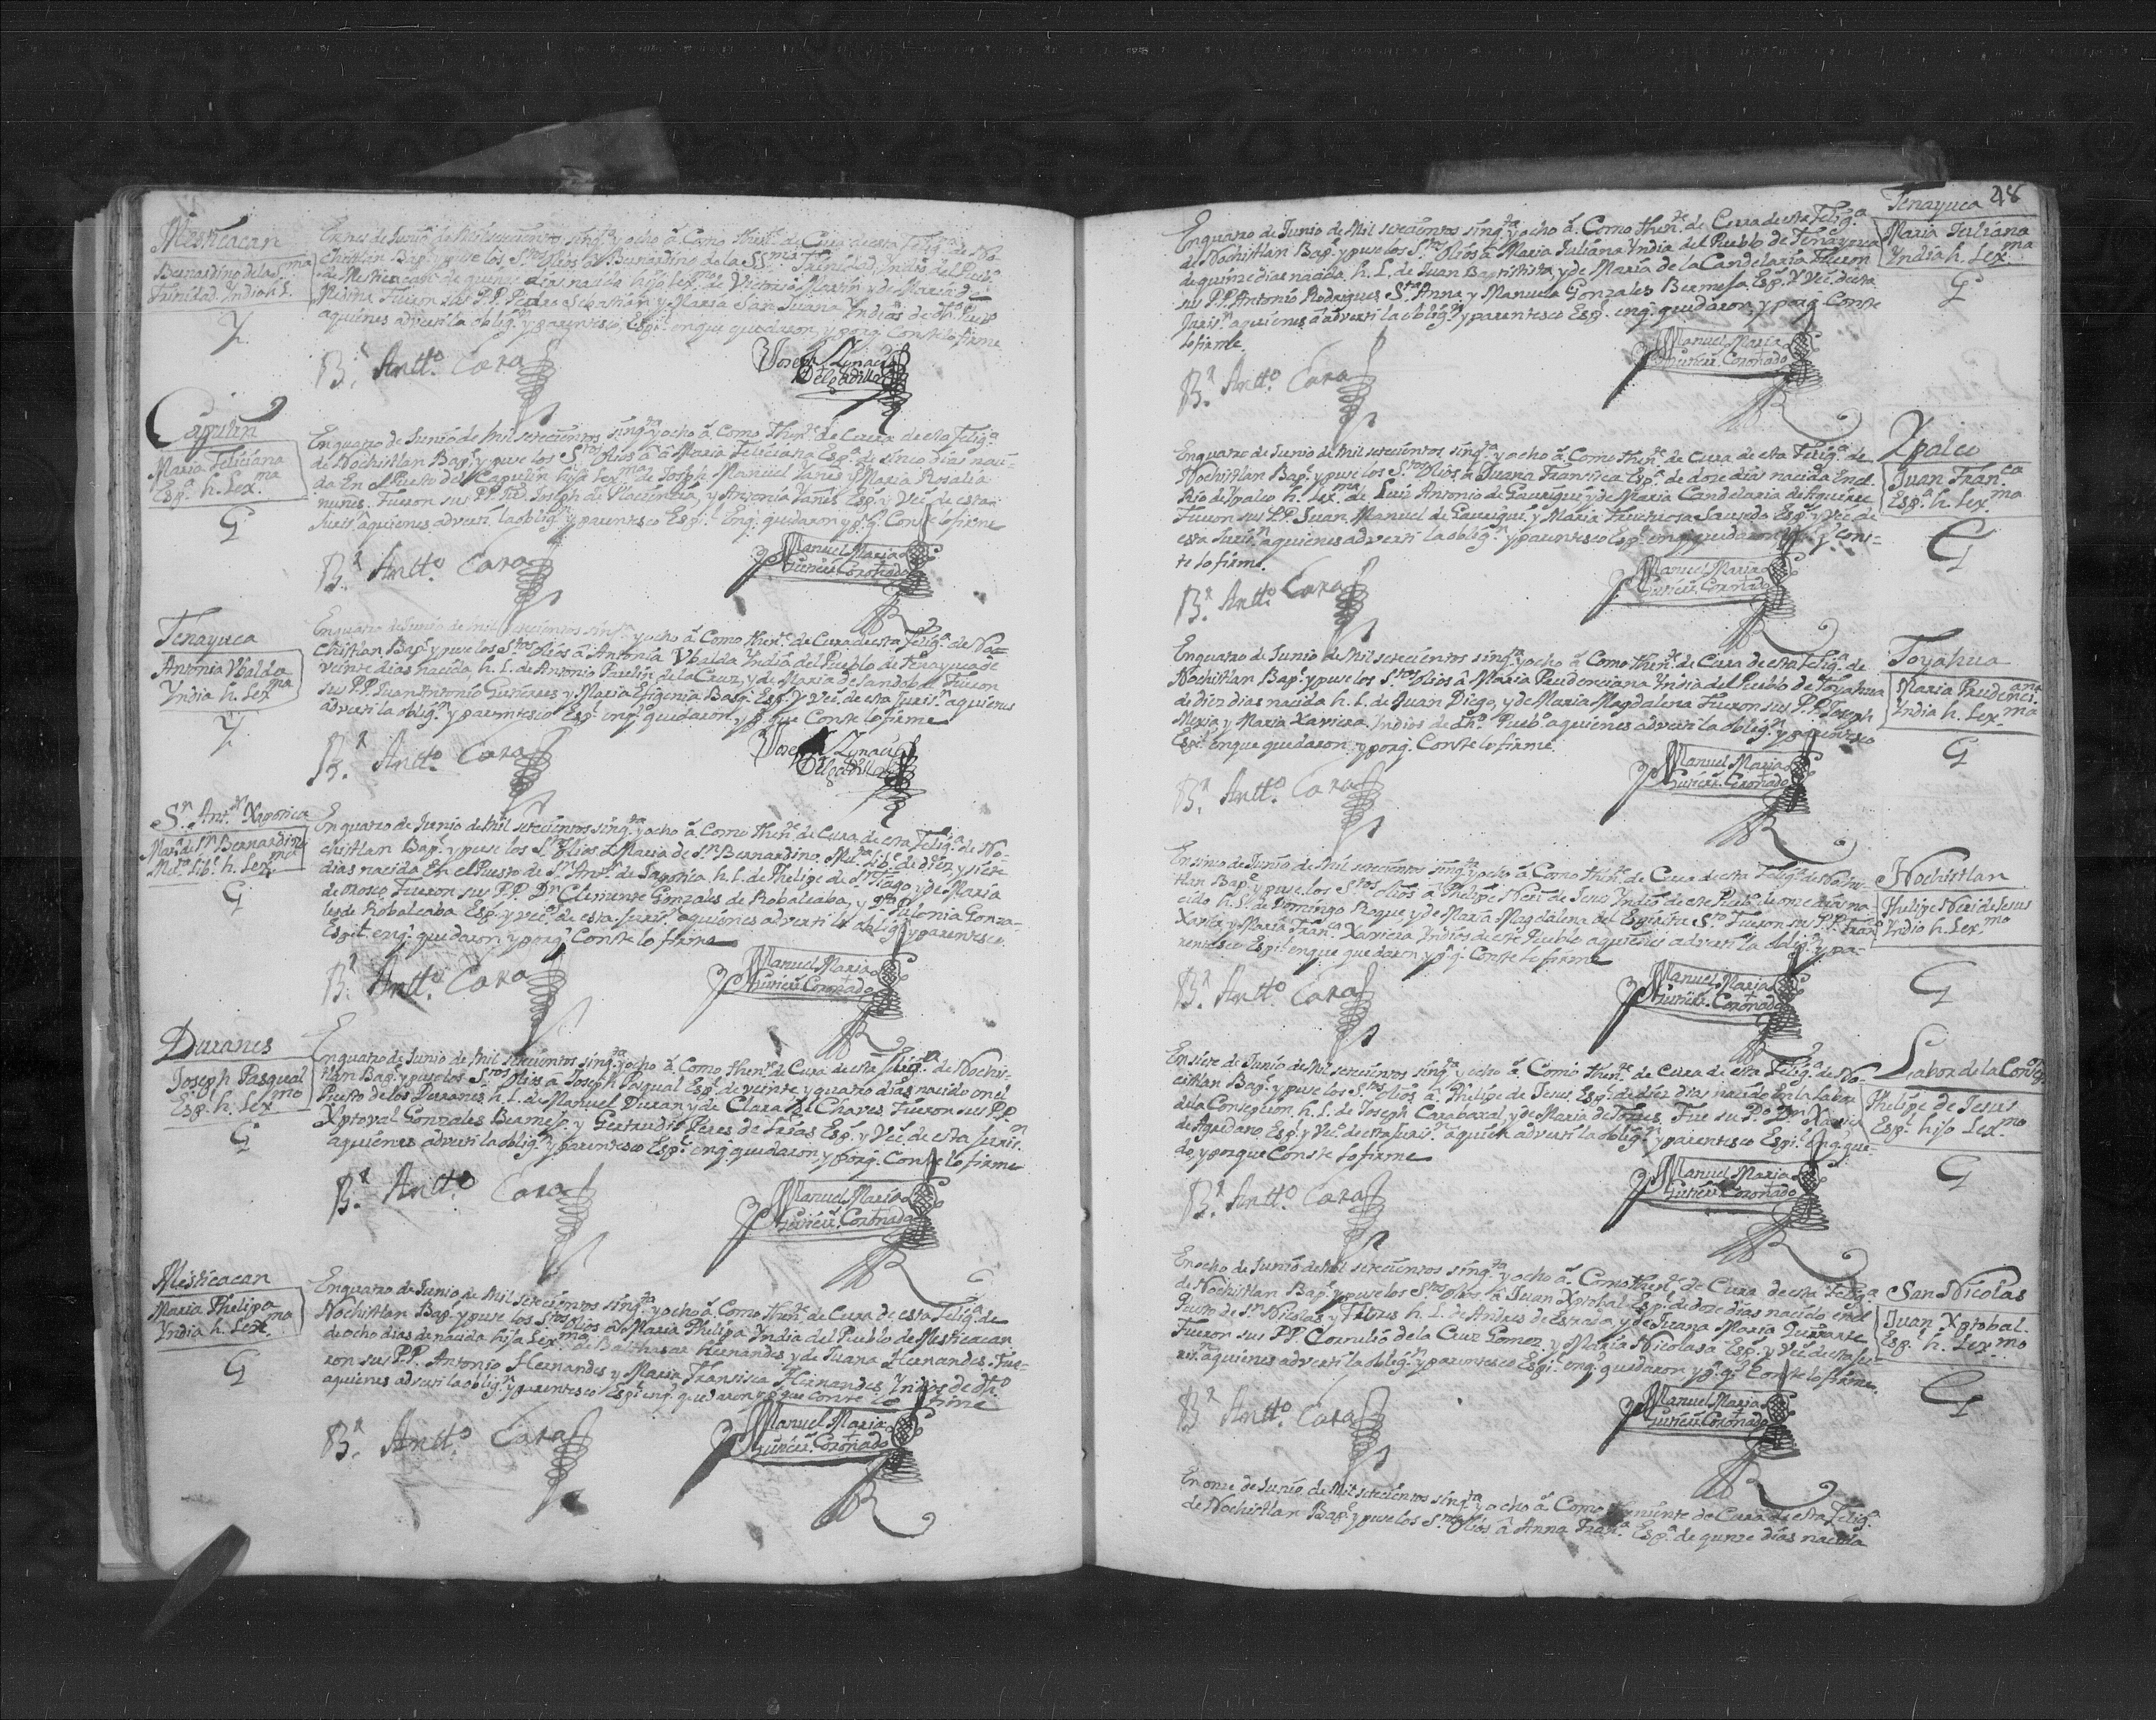 Mesticacan
Bernardino de la SSma
Trinidad. Yndio h. L.
Y.
En tres de Junio de Mil setecientos sinqta y ocho a.s Como thente de Cura de esta Feliga de No-
chistlan Bapé y puse los Stos Olios a Bernardino de la SSma Trinidad, Yndio del Pueblo
de Mesticacan de quinze dias nacido hijo lexmo de Victorio Martin y de Maria de
Medina Fueron sus P.P. Pedro Sebastian y Maria San Juana Yndios de dho Pueblo
aquienes adverti la obligon y parentesco Espl. enque quedaron, y porq. Conste lo firme
Br. Antto. Cara
Joseph Ygnacio
Delgadillo
Capulin
Maria Feliciana
Espa h. Lexma
G
En quatro de Junio de Mil setecientos sinqta y ocho a. Como Thente de Cura de esta Feliga
de Nochistlan Bapé y puse los Stos Olios a Maria Feliciana Espa de sinco dias naci-
da En el Puesto del Capulin hija lexma de Joseph Manuel Yañes y Maria Rosalia
nuñes. Fueron sus P.P. Joseph de Placencia, y Antonia Yañes Esps. y Vecs de esta
Jurisn aquienes adverti la obligon y parentesco Espl. Enq. quedaron y p.q. Conste lo firme
Br. Antto. Cara
Manuel Maria
Gutierr. Coronado
Tenayuca
Antonia Vbalda
Yndia h. Lexma
Y.
En quatro de Junio de Mil setecientos sinqta y ocho a. Como thente de Cura de esta Feliga de No-
chistlan Bapé y puse los Stos Olios a Antonia Vbalda Yndia del Pueblo de tenayuca de
veinte dias nacida, h. L. de Antonio Paulin de la Cruz, y de Maria de Sandobal Fueron
sus P.P. Juan Antonio Gutierres y Maria Efigenia Basq. Esps. y Vecs de esta Jurisn. aquienes
adverti la obligon y parentesco Espl. enq. quedaron y p. que Conste lo firme
Br. Antto. Cara
Joseph Ygnacio
Delgadillo
Sn. Anto. Xaponica
Maria de Sn Bernardino
Mula. Libe. h. Lexma
G
En quatro de Junio de Mil setecientos sinqta y ocho a. Como thente de Cura de esta Feliga de No-
chistlan Bapé y puse los Stos Olios a Maria de Sn Bernardino. Mula. Libe. de diez y siete
dias nacida En el Puesto de Sn Anto. de Saponia h. L. de Phelipe de Sn Tiago y de Maria
de Orosco Fueron sus P.P. Dn. Clemente Gonzales de Robalcaba, y Da. Polonia Gonza-
les de Robalcaba Esps. y vecs de esta Jurisn aquienes adverti la obligon y parentesco
Espl. enq. quedaron y porq. Conste lo firme
Br. Antto. Cara
Manuel Maria
Gutierr. Coronado
Duranes
Joseph Pasqual
Esp. h. Lexmo
G
En quatro de Junio de Mil setecientos sinqta y ocho a. Como thente de Cura de esta Feliga de Nochis-
tlan Bapé y puse los Stos Olios a Joseph Pasqual Espl. de veinte y quatro dias nacido en el
Puesto de los Duranes h. L. de Manuel Duran y de Clara Chaves. Fueron sus P.P.
Xptoval Gonzales Bermejo. y Gertrudis Peres de Frias Esps. y Vecs. de esta Jurisn.
aquienes adverti la obligon y parentesco Espl. enq. quedaron, y porq. Conste lo firme
Br. Antto. Cara
Manuel Maria
Gutierr. Coronado
Mesticacan
Maria Phelipa
Yndia h. Lexma
G
En quatro de Junio de Mil setecientos sinqta y ocho a. Como thente de Cura de esta Feliga de
Nochistlan Bapé y puse los Stos Olios a Maria Phelipa Yndia del Pueblo de Mesticacan
de ocho dias de nacida hija Lexma de Balthasar Hernandes y de Juana Hernandes. Fue-
ron sus P.P. Antonio Hernandes y Maria Fransisca Hernandes Yndios de dho.
aquienes adverti la obligon y parentesco Espl. enq. quedaron y p. que Conste lo firme
Br. Antto. Cara
Manuel Maria
Gutierr. Coronado
48
Tenayuca
Maria Juliana
Yndia h. Lexma
G
En quatro de Junio de Mil setecientos sinqta y ocho a. Como thente de Cura de esta Feliga
de Nochistlan Bapé y puse los Stos Olios a Maria Juliana Yndia del Pueblo de Tenayuca
de quinze dias nacida, h. L. de Juan Baptistista, y de Maria de la Candelaria Fueron
sus P.P. Antonio Rodrigues Sta. Anna, y Manuela Gonzales Bermeja Esps. y Vecs. de esta
Jurisn. aquienes a adverti la obligon y parentesco Espl. enq. quedaron, y porq. Conste
lo firme.
Br. Antto. Cara
Manuel Maria
Gutierr. Coronado
Ypalco
Juan Franca
Espa. h. Lexma
G
En quatro de Junio de Mil setecientos sinqta y ocho a. Como thente de Cura de esta Feliga de
Nochistlan Bapé y puse los Stos Olios a Juana Fransisca Espa. de dose dias nacida En el
Rio de Ypalco h. Lexma de Luis Antonio de Gauregue y de Maria Candelaria de Aguirre
Fueron sus P.P. Juan Manuel de Gauregui y Maria Fructuosa Sauseda Esps. y Vecs de
esta Jurisn aquienes adverti la obligon y parentesco Espl. enq. quedaron y p. q. Cons-
te lo firme.
Br. Antto. Cara
Manuel Maria
Gutierr. Coronado
Toyahua
Maria Prudenciana
Yndia h. Lexma
G
En quatro de Junio de Mil setecientos sinqta y ocho a. Como thente de Cura de esta Feliga de
Nochistlan Bapé y puse los Stos Olios a Maria Prudenciana Yndia del Pueblo de Toyahua
de diez dias nacida h. L. de Juan Diego, y de Maria Magdalena Fueron sus P.P. Joseph
Mexia y Maria Xaviera Yndios de dho. Pueblo aquienes adverti la obligon y parentesco
Espl. enque quedaron. y porq. Conste lo firme.
Br. Antto. Cara
Manuel Maria
Gutierr. Coronado
Nochistlan
Phelipe Neri de Jesus
Yndio h. Lexmo
G
En sinco de Junio de Mil setecientos sinqta y ocho a. Como thente de Cura de esta Feliga de Nochis-
tlan Bapé y puse los Stos Olios a Phelipe Neri de Jesus Yndio de este Pueblo de onze dias na-
cido h. L. de Domingo Roque y de Maria Magdalena del Espiritu Sto. Fueron sus P.P. Frano
Xavier y Maria Franca Xaviera Yndios de este Pueblo aquienes adverti la obligon y pa-
rentesco Espl. enque quedaron y p. q. Conste lo firme
Br. Antto. Cara
Manuel Maria
Gutierr. Coronado
Labor de la Concepn
Phelipe de Jesus
Espl. hijo Lexmo
G
En siete de Junio de Mil setecientos sinqta y ocho a. Como thente de Cura de esta Feliga de No-
chistlan Bapé y puse los Stos Olios a Phelipe de Jesus Espl. de diez dias nacido En la Labor
de la Consepcion, h. L. de Joseph Carabaxal y de Maria de Torres. Fue su Po. Dn. Xavier
de Aguedano, Espl. y Veco. de esta Jurisn. aquien adverti la obligon y parentesco Espl. Enq. que-
do, y porque Conste lo firme
Br. Antto. Cara
Manuel Maria
Gutierr. Coronado
San Nicolas
Juan Xptobal.
Espl. h. Lexmo
G
En ocho de Junio de Mil setecientos sinqta y ocho a. Como thente de Cura de esta Feliga
de Nochistlan Bapé y puse los Stos Olios a Juan Xptobal Espl. de dose dias nacido en el
Puesto de Sn. Nicolas y Flores h. L. de Andres de Estrada, y de Juana Maria Guerrarte
Fueron sus P.P. Cornelio de la Cruz Gomez, y Maria Nicolasa Esps. y Vecs de esta Ju-
risn. aquienes adverti la obligon y parentesco Espl. enq. quedaron y p. q. Conste lo firme.
Br. Antto. Cara
Manuel Maria
Gutierr. Coronado
En onze de Junio de Mil setecientos sinqta y ocho a. Como theniente de Cura de esta Feliga.
de Nochistlan Bapé y puse los Stos Olios a Anna Franca. Espa. de quinze dias nacida